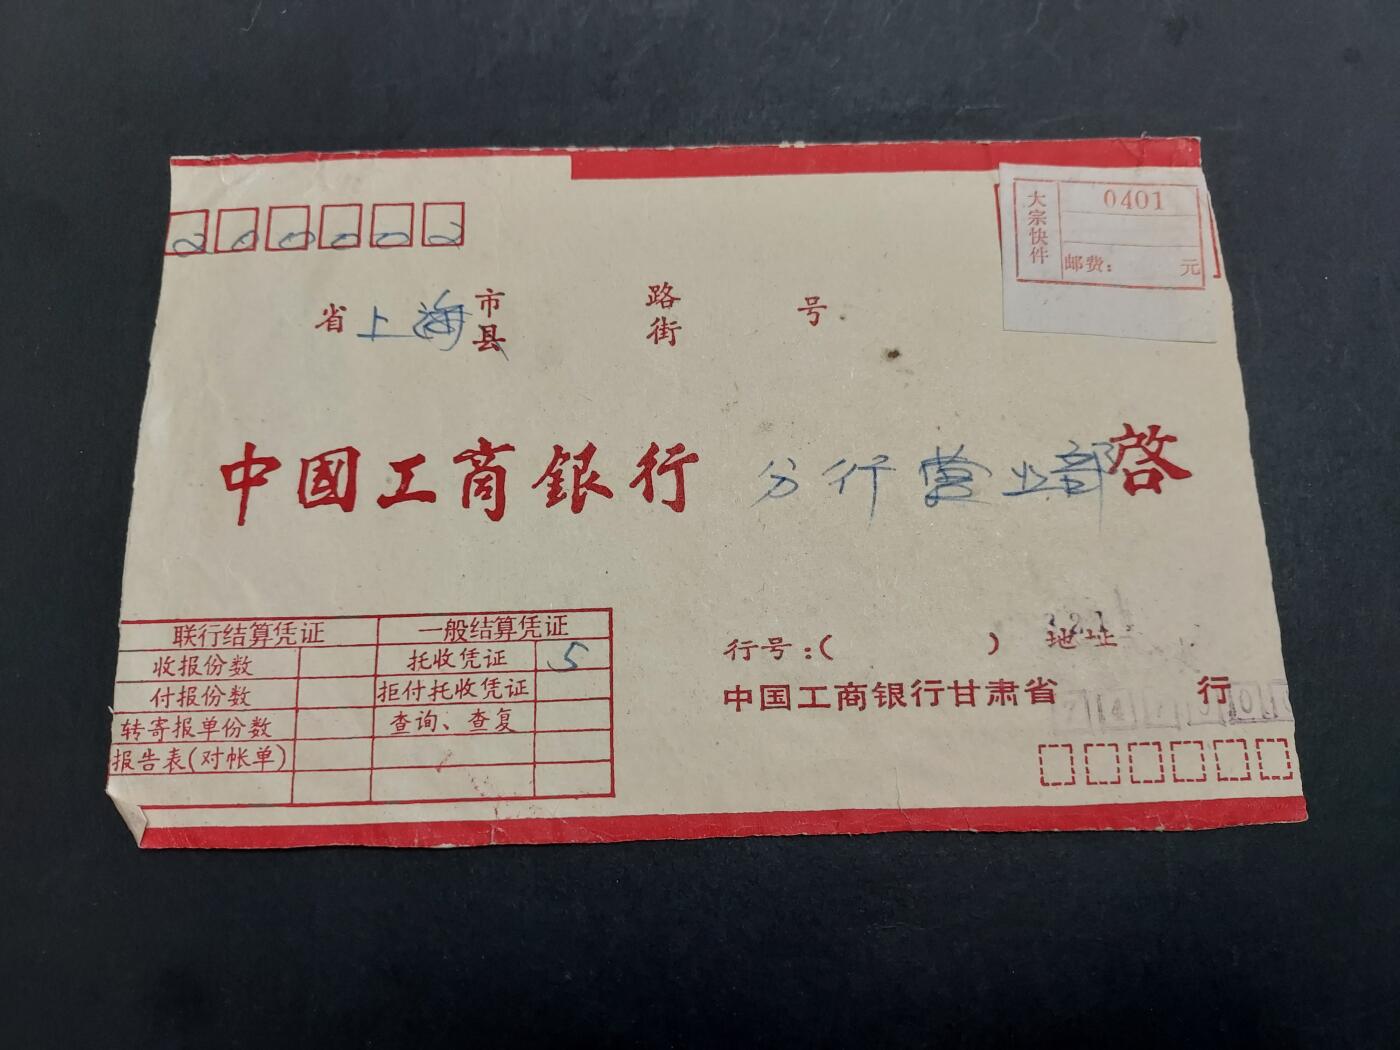 200002
大宗快件
0401
邮费： 元
省 上海 市县 路街 号
中國工商銀行 分行营业部 啓
联行结算凭证 一般结算凭证
收报份数 托收凭证 5
付报份数 拒付托收凭证
转寄报单份数 查询、查复
报告表(对帐单)
行号：( ) 地址
中国工商银行甘肃省 行